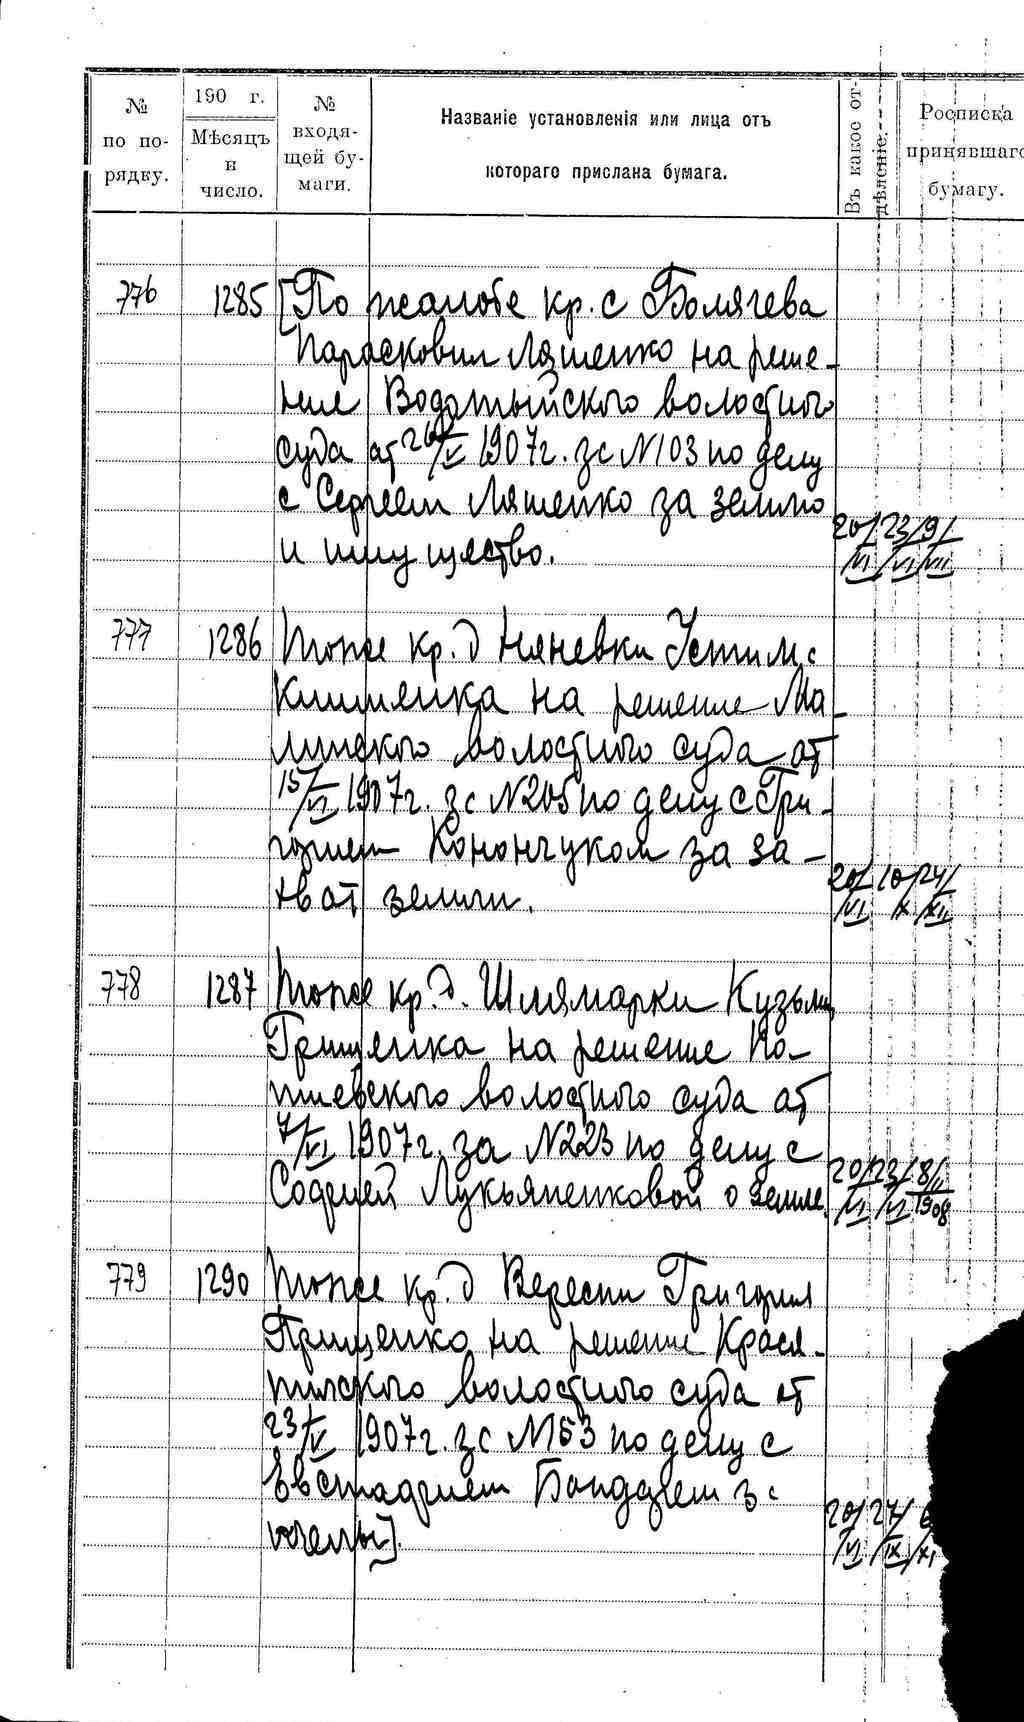 № по порядку.
190 г. Мѣсяцъ и число.
№ входящей бумаги.
Названіе установленія или лица отъ
котораго прислана бумага.
Въ какое отдѣленіе.
Росписка принявшаго бумагу.
776 1285 [По жалобе кр. с Болячева
Парасковии Ляшенко на реше-
ние Водотыйского волостного
суда от 26/V 1907г. за N103 по делу
с Сергеем Ляшенко за землю
и имущество. 20/VI 23/VI 9/VII
777 1286 тоже кр. д Няневки Устима
Кишменка на решение Ма-
линского волостного суда от
15/VI 1907г. за N205 по делу с Гри-
горием Конончуком за за-
хват земли. 20/VI 10/X 24/XII
778 1287 тоже кр. д. Шлямарки Кузьмы
Грищенка на решение По-
тиевского волостного суда от
7/VI 1907г. за N223 по делу с
Софией Лукьяненковой о земле. 20/VI 23/VI 8/II 1908
779 1290 тоже кр. д Вересни Григория
Прищенко на решение Крася-
тилского волостного суда от
23/V 1907г. за N153 по делу с
Евстафием Бондарем за
пчелы]. 20/VI 27/IX /XI